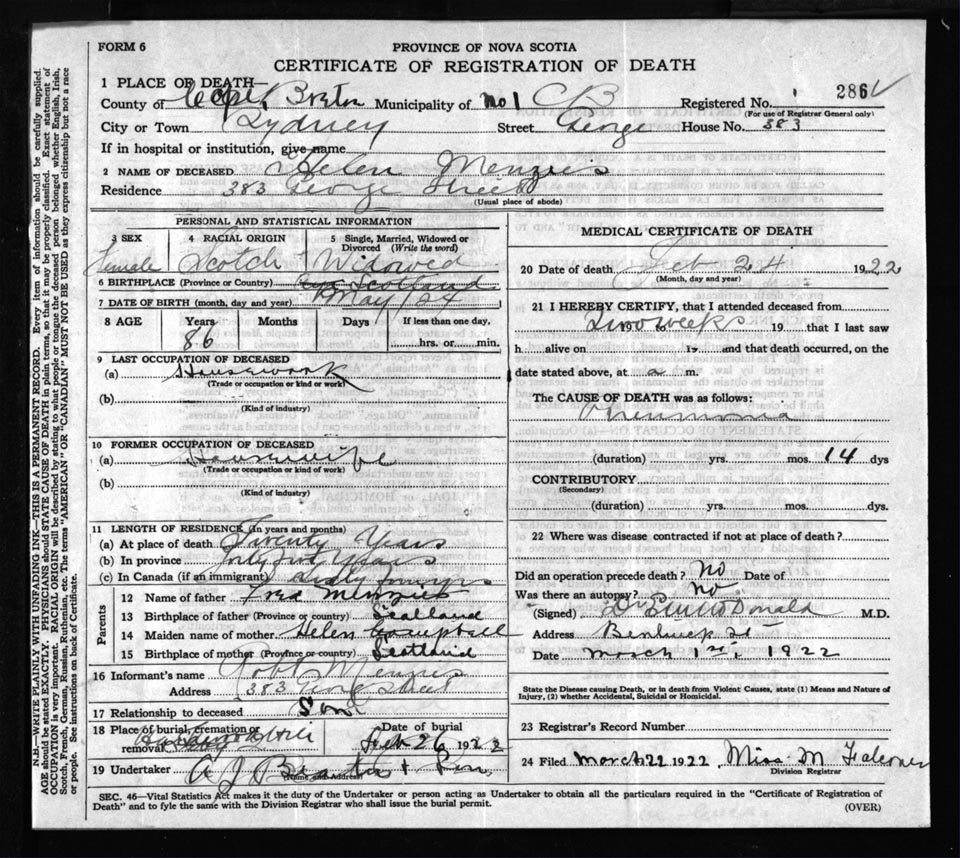 FORM 6
PROVINCE OF NOVA SCOTIA
CERTIFICATE OF REGISTRATION OF DEATH
1 PLACE OF DEATH—
County of Cape Breton Municipality of No 1 C B Registered No. 286
(For use of Registrar General only)
City or Town Sydney Street George House No. 383
If in hospital or institution, give name
2 NAME OF DECEASED Helen Menzies
Residence 383 George Street
(Usual place of abode)
PERSONAL AND STATISTICAL INFORMATION
3 SEX 4 RACIAL ORIGIN 5 Single, Married, Widowed or Divorced (Write the word)
Female Scotch Widowed
6 BIRTHPLACE (Province or Country) Scotland
7 DATE OF BIRTH (month, day and year) May 24
8 AGE Years Months Days If less than one day,
86 hrs. or min.
9 LAST OCCUPATION OF DECEASED
(a) Housework
(Trade or occupation or kind or work)
(b)
(Kind of industry)
10 FORMER OCCUPATION OF DECEASED
(a) Housewife
(Trade or occupation or kind of work)
(b)
(Kind of industry)
11 LENGTH OF RESIDENCE (In years and months)
(a) At place of death Twenty Years
(b) In province Years
(c) In Canada (if an immigrant) Sixty four yrs
Parents
12 Name of father Fred Menzies
13 Birthplace of father (Province or country) Scotland
14 Maiden name of mother Helen Campbell
15 Birthplace of mother (Province or country) Scotland
16 Informant's name Robt Menzies
Address 383 George Street
17 Relationship to deceased Son
18 Place of burial, cremation or removal Date of burial
Feb 26 1922
19 Undertaker A J & Son
(Name and Address)
MEDICAL CERTIFICATE OF DEATH
20 Date of death Feb 24 1922
(Month, day and year)
21 I HEREBY CERTIFY, that I attended deceased from
Two weeks 19 that I last saw
h alive on 19 and that death occurred, on the
date stated above, at a m.
The CAUSE OF DEATH was as follows:
Pneumonia
(duration) yrs. mos. 14 dys
CONTRIBUTORY
(Secondary)
(duration) yrs. mos. dys
22 Where was disease contracted if not at place of death?
Did an operation precede death? No Date of
Was there an autopsy? No
(Signed) Donald M.D.
Address
Date March 1st, 1922
State the Disease causing Death, or in death from Violent Causes, state (1) Means and Nature of
Injury, (2) whether Accidental, Suicidal or Homicidal.
23 Registrar's Record Number
24 Filed March 22 1922, Miss M Falconer
Division Registrar
SEC. 46—Vital Statistics Act makes it the duty of the Undertaker or person acting as Undertaker to obtain all the particulars required in the "Certificate of Registration of
Death" and to fyle the same with the Division Registrar who shall issue the burial permit.
(OVER)
N.B.—WRITE PLAINLY WITH UNFADING INK—THIS IS A PERMANENT RECORD. Every item of information should be carefully supplied.
AGE should be stated EXACTLY. PHYSICIANS should STATE CAUSE OF DEATH in plain terms, so that it may be properly classified. Exact statement of
OCCUPATION is very important. RACIAL ORIGIN will be described by stating to what people or tongue the deceased person belonged whether English, Irish,
Scotch, French, German, Russian, Ruthenian, etc. The terms "AMERICAN" OR "CANADIAN" MUST NOT BE USED as they express citizenship but not a race
or people. See instructions on back of Certificate.